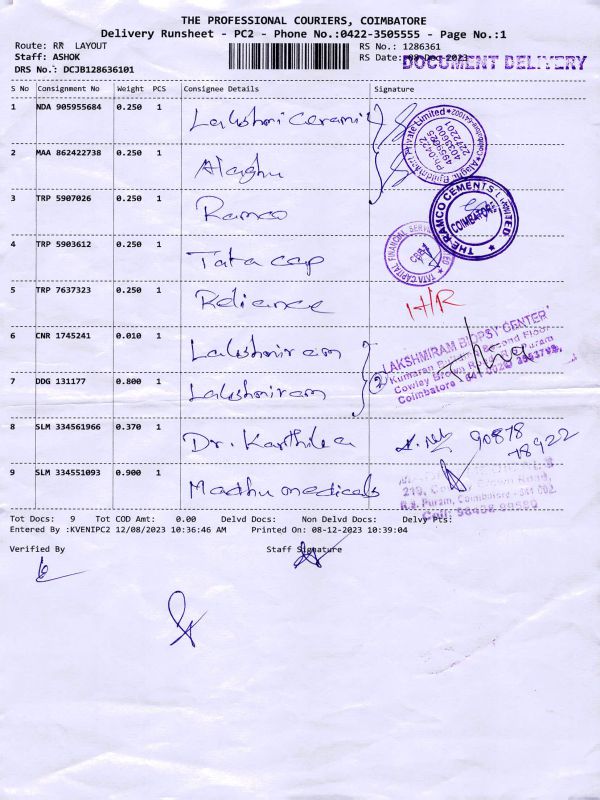 THE PROFESSIONAL COURIERS, COIMBATORE
Delivery Runsheet - PC2 - Phone No.:0422-3505555 - Page No.:1
Route: RR LAYOUT
Staff: ASHOK
DRS No.: DCJB128636101
RS No.: 1286361
RS Date: 08-Dec-2023
DOCUMENT DELIVERY
S No Consignment No Weight PCS Consignee Details Signature
1 NDA 905955684 0.250 1 Lakshmi Ceramic
Private Limited
Ph:0422
2 MAA 862422738 0.250 1 Alaghu
3 TRP 5907026 0.250 1 Ramco
THE RAMCO CEMENTS LIMITED
COIMBATORE
4 TRP 5903612 0.250 1 Tata cap
TATA CAPITAL FINANCIAL SERVICES LIMITED
CBB1
5 TRP 7637323 0.250 1 Reliance H/R
6 CNR 1745241 0.010 1 Lakshmiram
LAKSHMIRAM BIOPSY CENTER
Kumaran Building, Second Floor
Cowley Brown Road, R.S. Puram
Coimbatore - 641 002
7 DDG 131177 0.800 1 Lakshmiram 2
8 SLM 334561966 0.370 1 Dr. Karthika 90878
78922
9 SLM 334551093 0.900 1 Madhu medicals
R.S. Puram, Coimbatore - 641 002.
Tot Docs: 9 Tot COD Amt: 0.00 Delvd Docs: Non Delvd Docs: Delvy Pts:
Entered By :KVENIPC2 12/08/2023 10:36:46 AM Printed On: 08-12-2023 10:39:04
Verified By Staff Signature